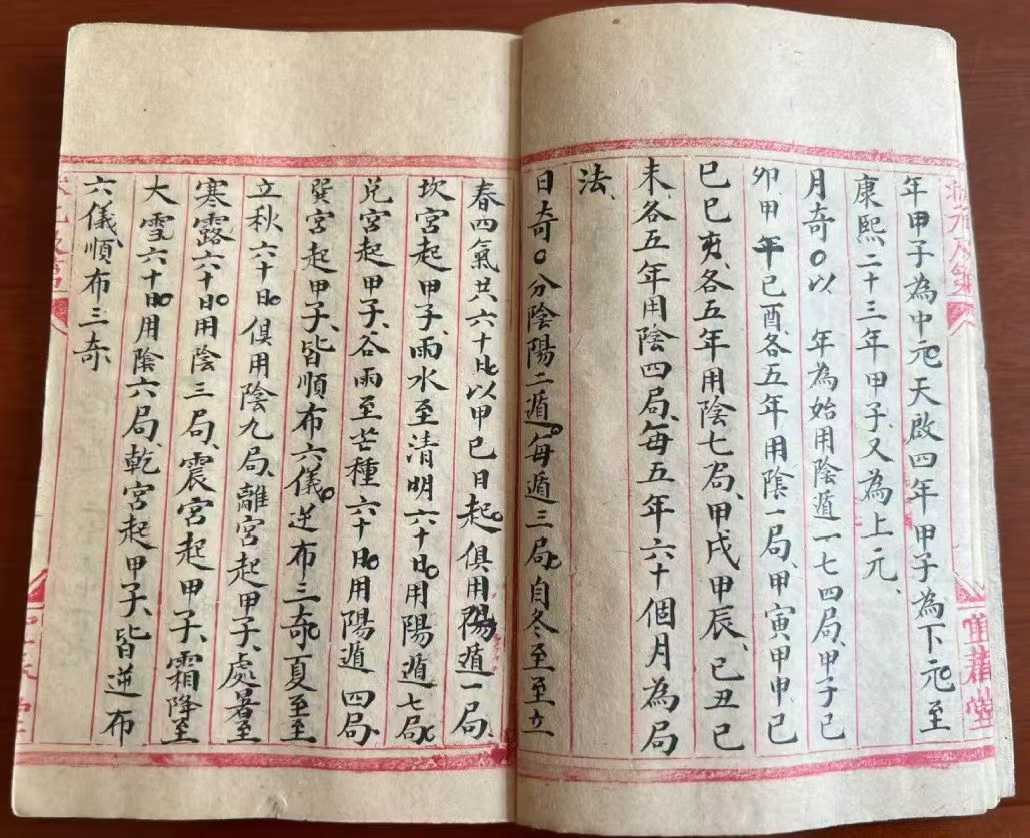 年甲子為中元天啟四年甲子為下元至
康熙二十三年甲子又為上元、
月奇○以　年為始用陰遁一七四局、甲子己
卯、甲午己酉、各五年用陰一局、甲寅甲申、己
巳己亥、各五年用陰七局、甲戌甲辰、己丑己
未、各五年用陰四局、每五年六十個月為局
法、
日奇○分陰陽二遁。每遁三局。自冬至至立
春四氣共六十日。以甲己日起。俱用陽遁一局、
坎宮起甲子、雨水至清明六十日。用陽遁七局。
兌宮起甲子、谷雨至芒種六十日。用陽遁四局、
巽宮起甲子、皆順布六儀。逆布三奇。夏至至
立秋六十日。俱用陰九局、離宮起甲子、處暑至
寒露六十日。用陰三局、震宮起甲子、霜降至
大雪六十日。用陰六局、乾宮起甲子、皆逆布
六儀順布三奇
堂